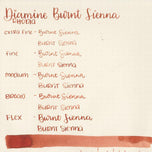 Diamine Burnt Sienna
extra fine - Burnt Sienna
Burnt Sienna
Fine - Burnt Sienna
Burnt Sienna
Medium - Burnt Sienna
Burnt Sienna
Broad - Burnt Sienna
Burnt Sienna
Flex - Burnt Sienna
Burnt Sienna